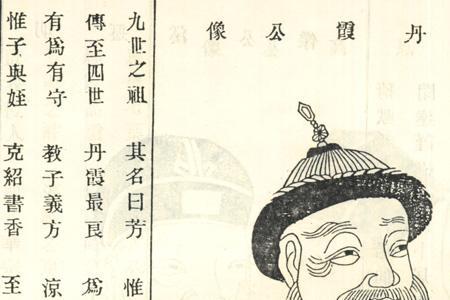 丹霞公像
九世之祖 其名曰芳 惟
傳至四世 丹霞最良 爲
有爲有守 教子義方 涼
惟子與姪 克紹書香 至